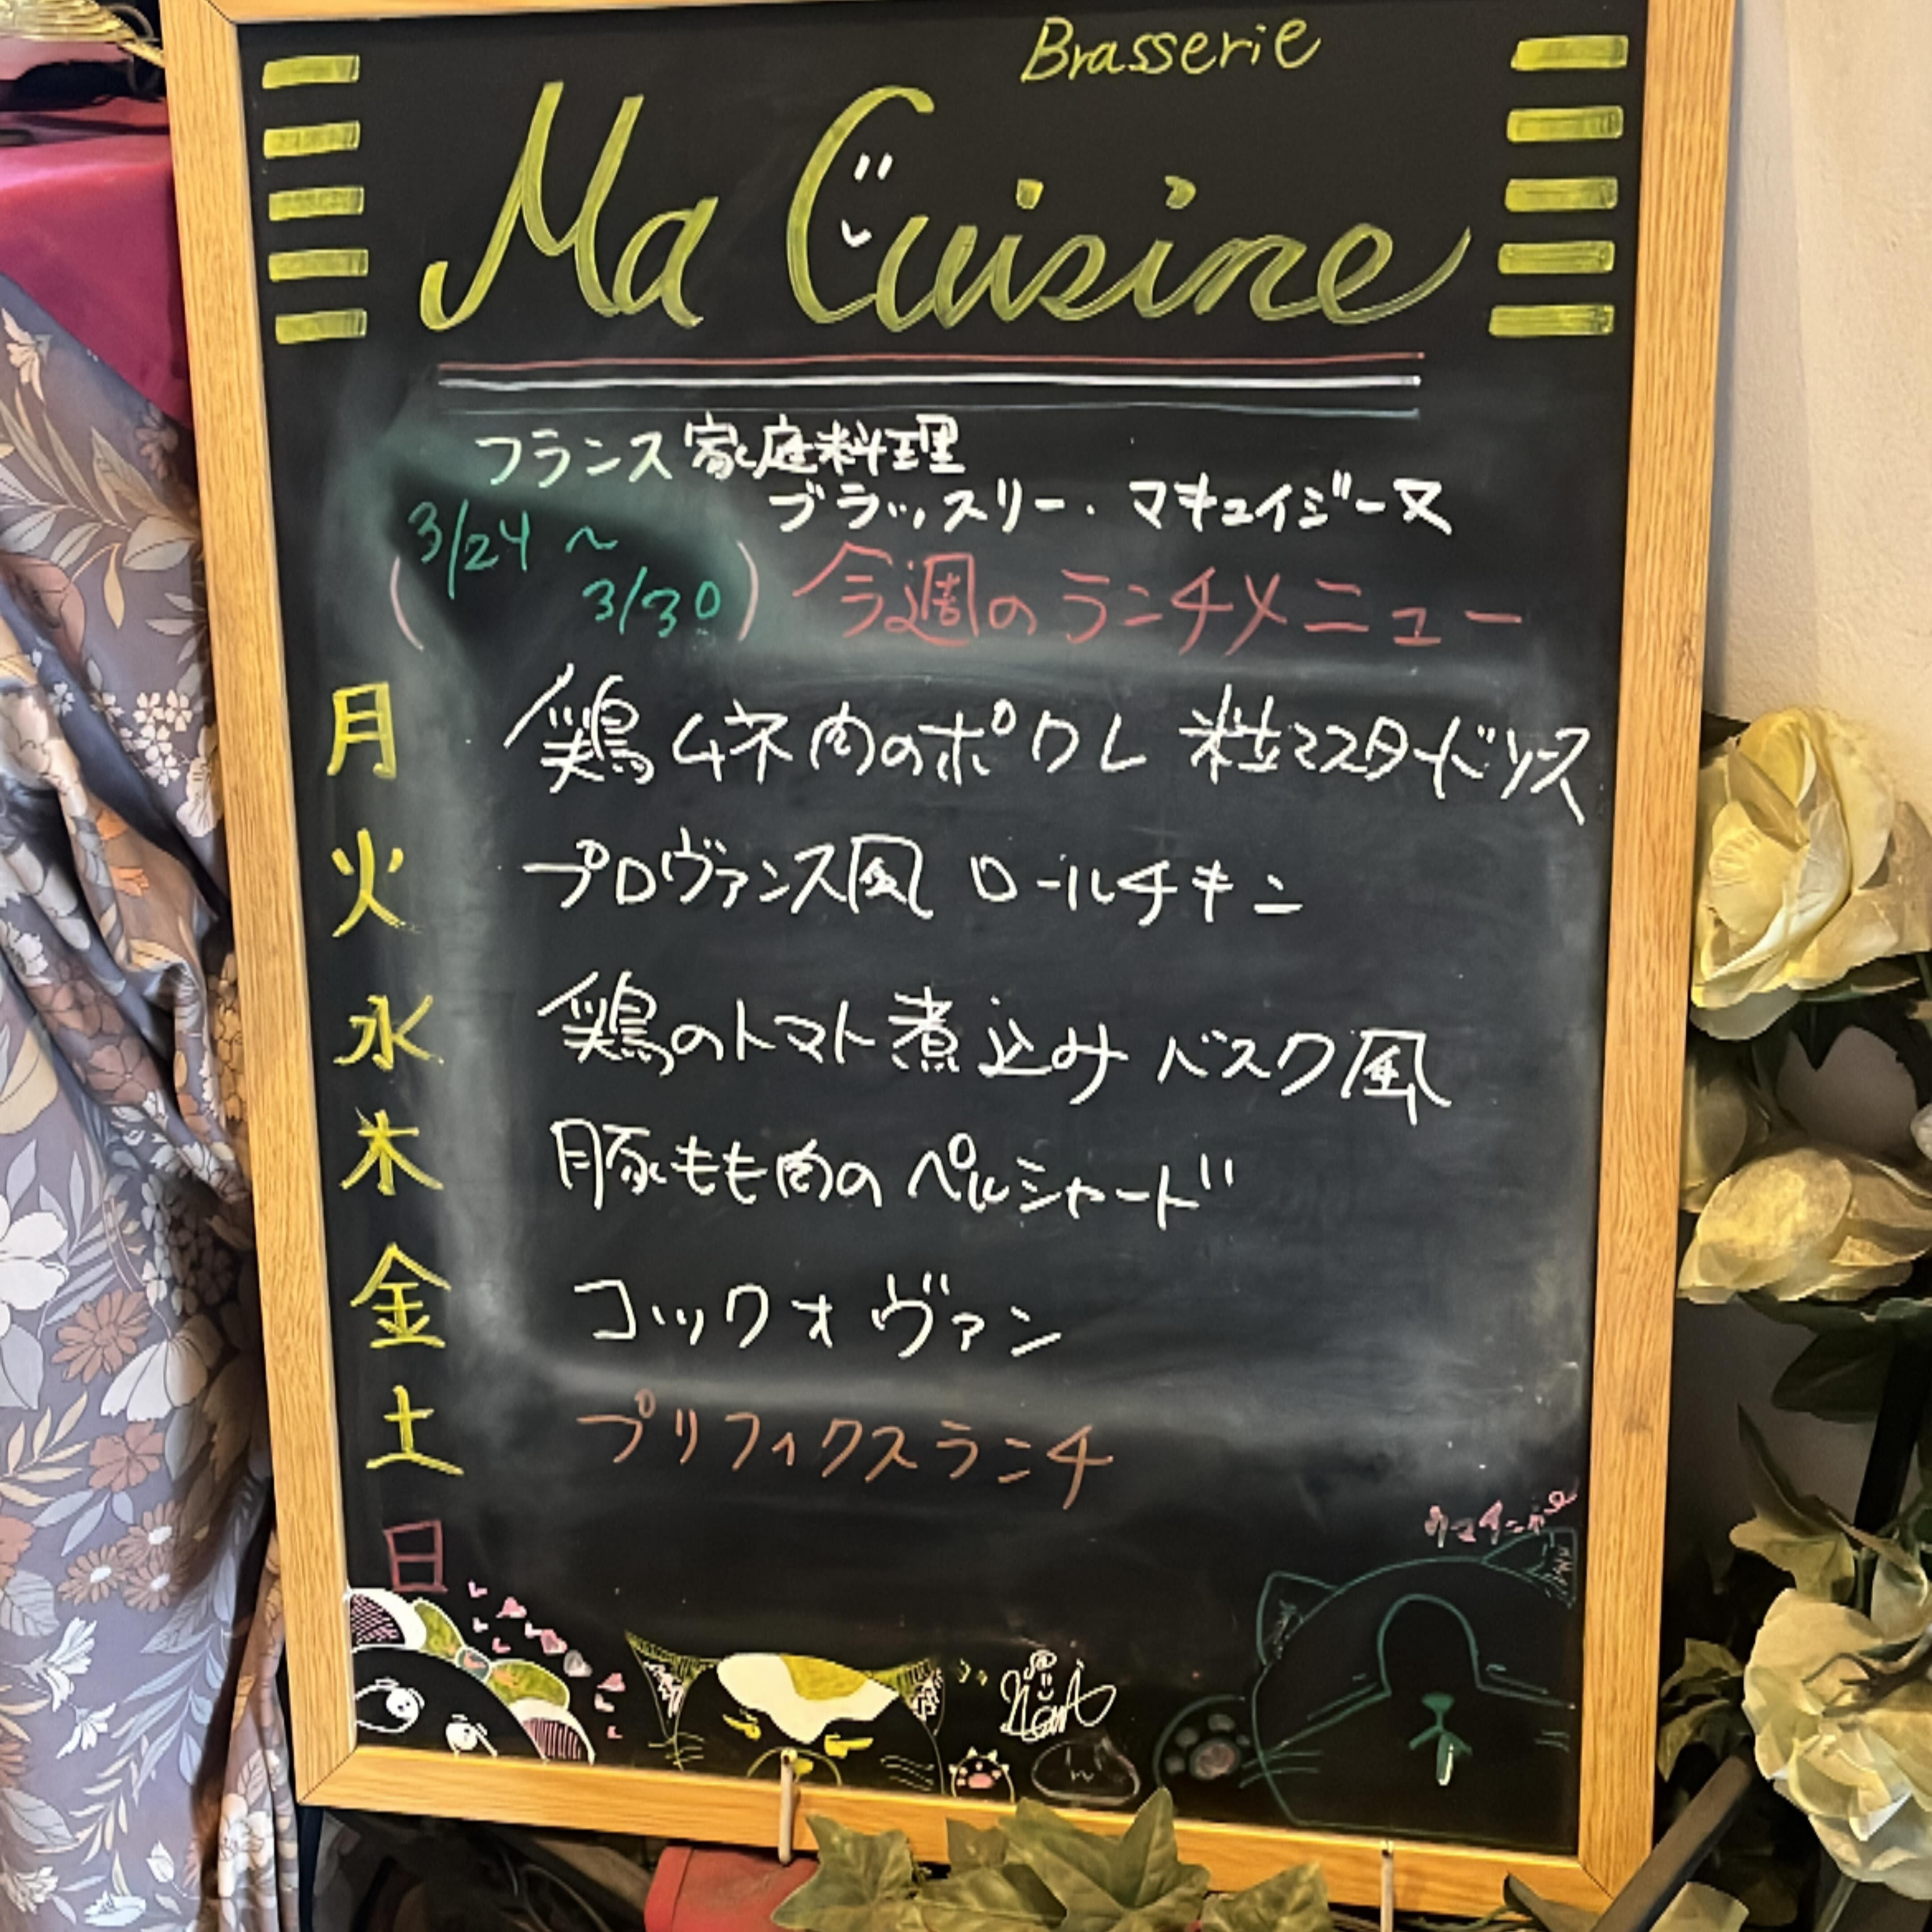 Brasserie
Ma Cuisine
フランス家庭料理
ブラッスリー・マキュイジーヌ
(3/24～3/30) 今週のランチメニュー
月 鶏ムネ肉のポワレ 粒マスタードソース
火 プロヴァンス風 ロールチキン
水 鶏のトマト煮込み バスク風
木 豚もも肉の ペルシャード
金 コックオヴァン
土 プリフィクスランチ
日